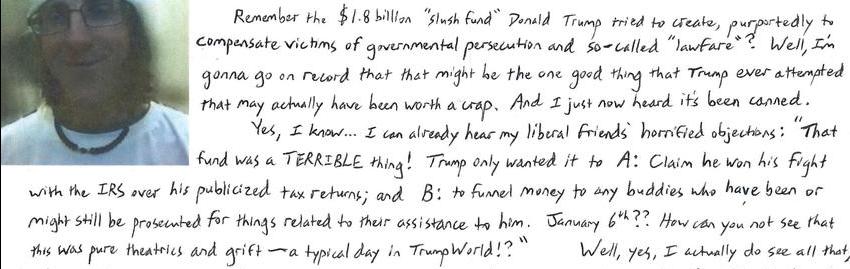 Remember the $1.8 billion "slush fund" Donald Trump tried to create, purportedly to
compensate victims of governmental persecution and so-called "lawfare"? Well, I'm
gonna go on record that that might be the one good thing that Trump ever attempted
that may actually have been worth a crap. And I just now heard it's been canned.
Yes, I know... I can already hear my liberal friends' horrified objections: "That
fund was a TERRIBLE thing! Trump only wanted it to A: Claim he won his fight
with the IRS over his publicized tax returns; and B: to funnel money to any buddies who have been or
might still be prosecuted for things related to their assistance to him. January 6th?? How can you not see that
this was pure theatrics and grift — a typical day in TrumpWorld!?" Well, yes, I actually do see all that,